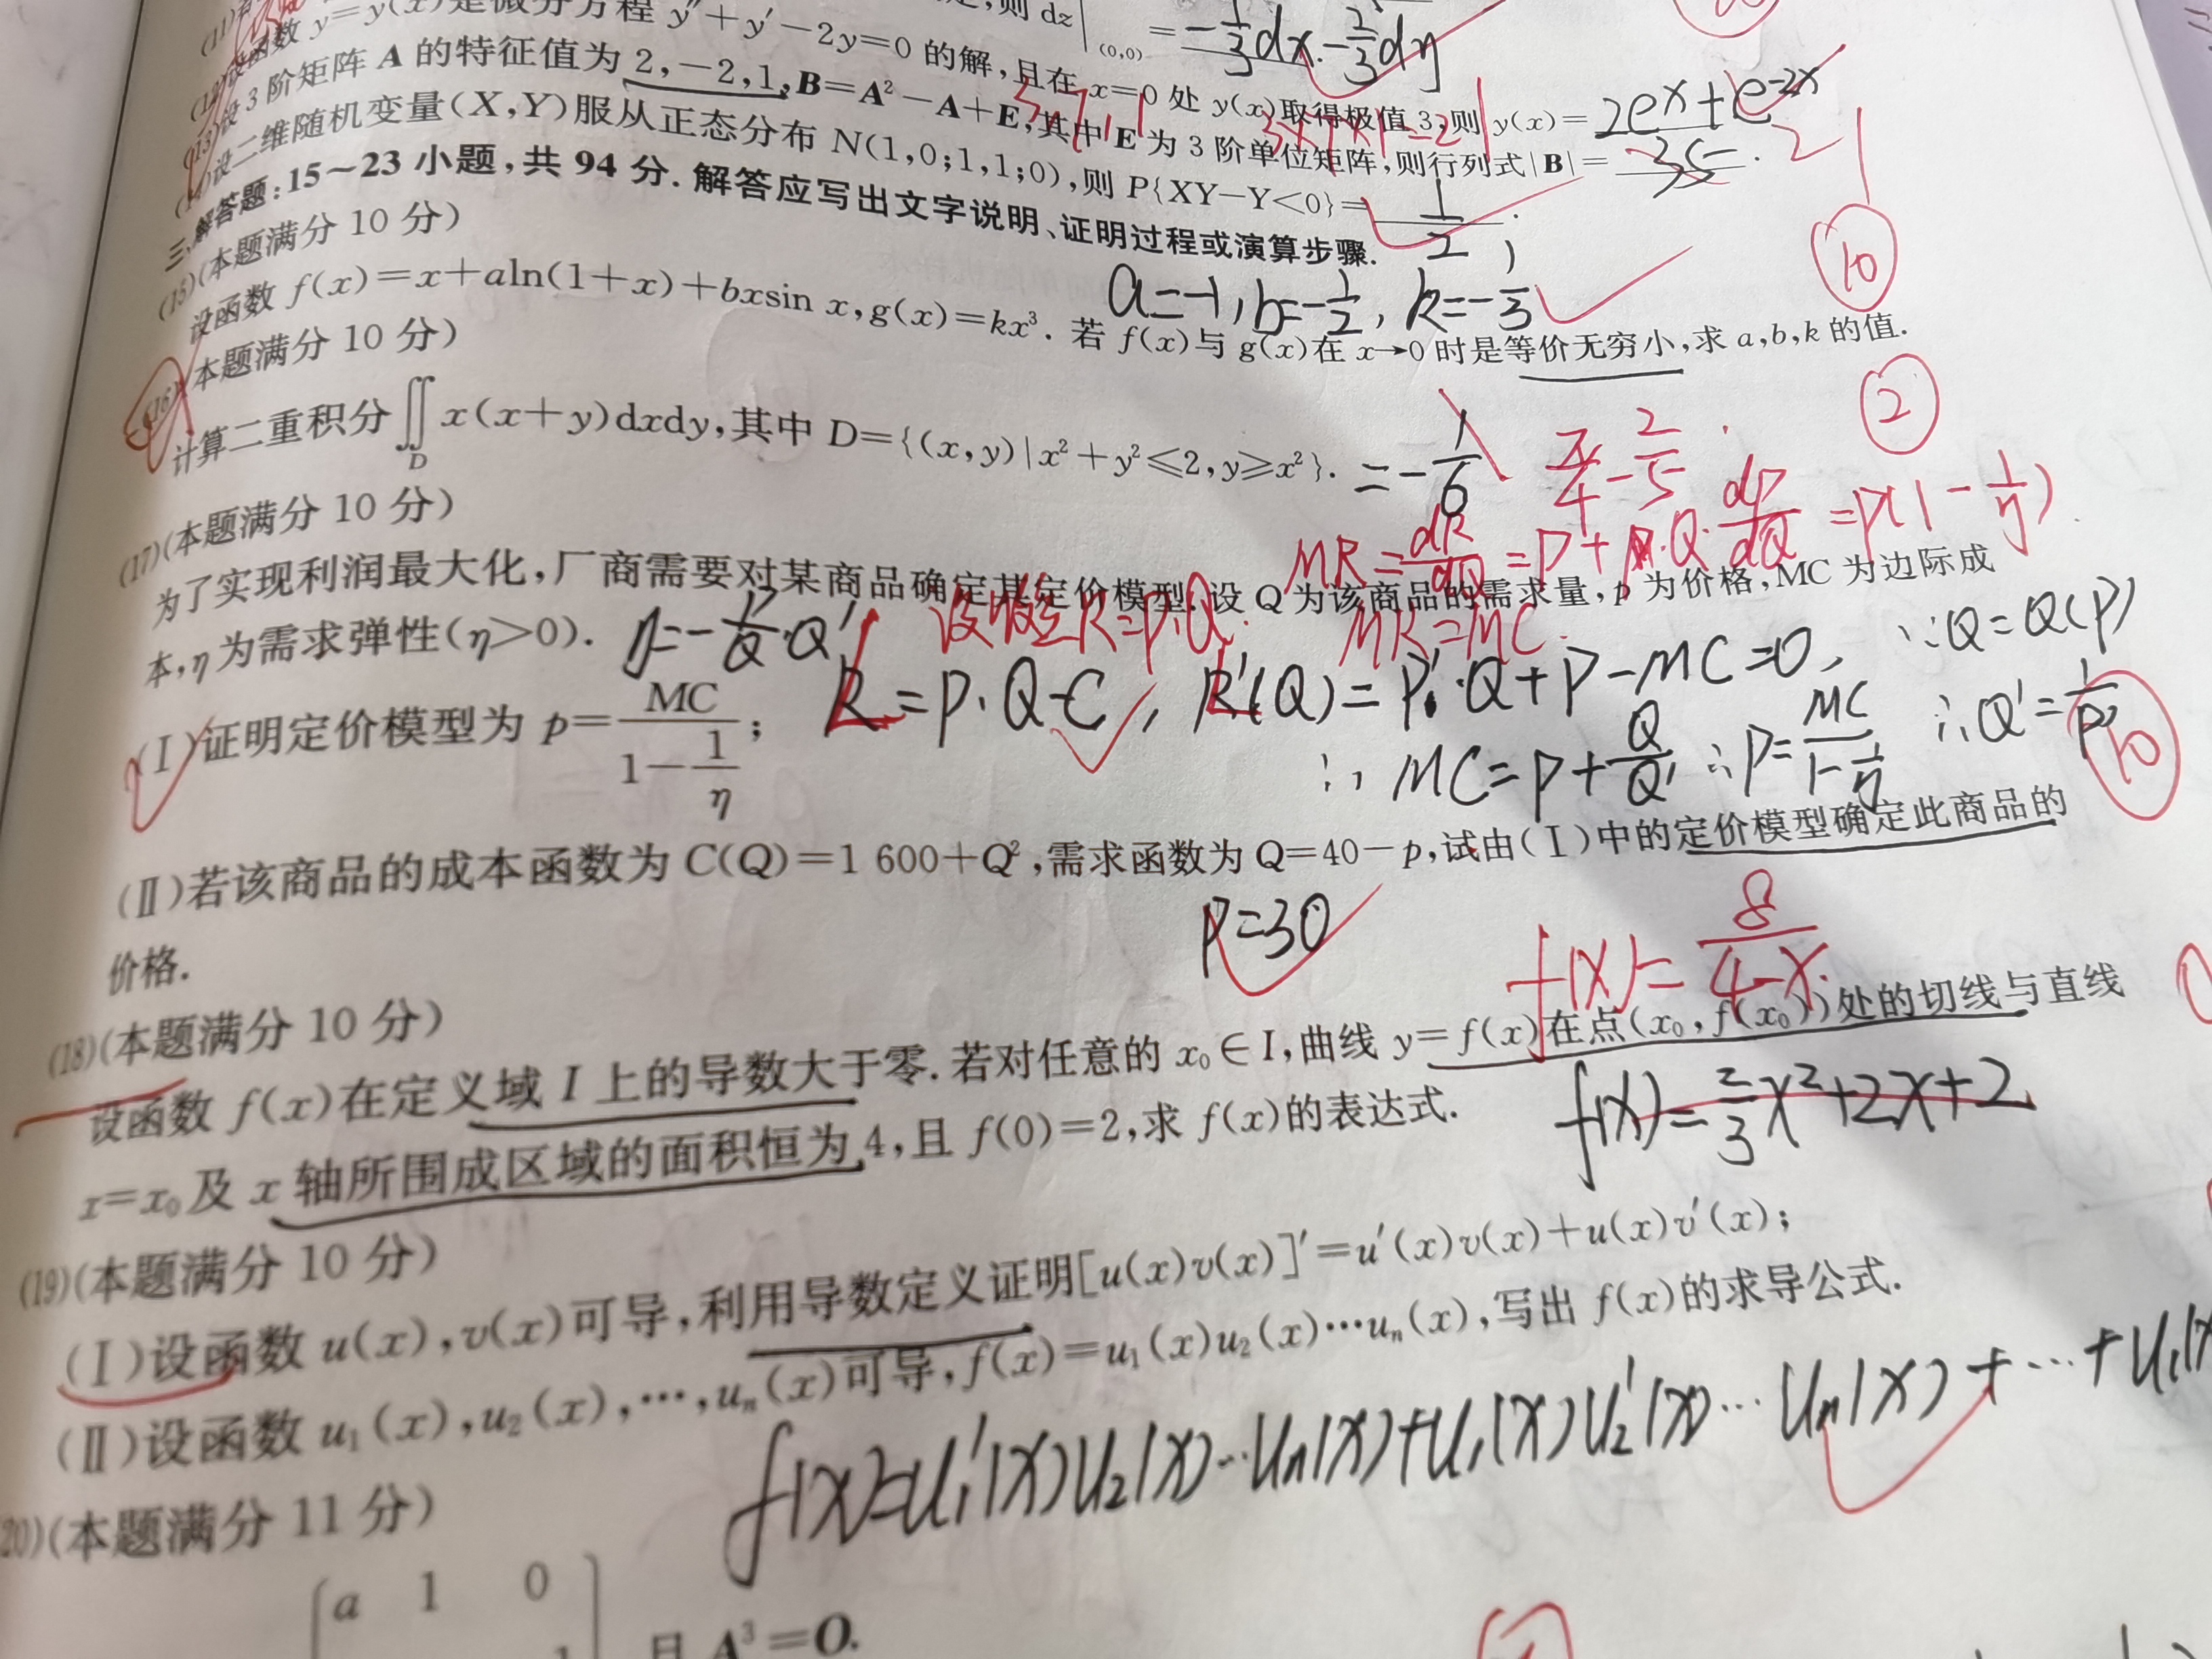 ,则 dz|(0,0) = -1/3dx-2/3dy
(12)设函数 y=y(x)是微分方程 y″+y′-2y=0 的解,且在 x=0 处 y(x)取得极值 3,则 y(x)= 2e^x+e^-2x
(13)设 3 阶矩阵 A 的特征值为 2,-2,1,B=A²-A+E,其中 E 为 3 阶单位矩阵,则行列式|B|= 35. 21
3×7×1=21
(14)设二维随机变量(X,Y)服从正态分布 N(1,0;1,1;0),则 P{XY-Y<0}= 1/2.
三、解答题:15~23 小题,共 94 分.解答应写出文字说明、证明过程或演算步骤.
(15)(本题满分 10 分)
a=-1,b=-1/2,k=-1/3
10
设函数 f(x)=x+aln(1+x)+bxsin x,g(x)=kx³.若 f(x)与 g(x)在 x→0 时是等价无穷小,求 a,b,k 的值.
(16)(本题满分 10 分)
2
计算二重积分∬D x(x+y)dxdy,其中 D={(x,y)|x²+y²≤2,y≥x²}. =-1/6 π/4-2/5
(17)(本题满分 10 分)
MR=dR/dQ=P+Q·dP/dQ=P(1-1/η)
为了实现利润最大化,厂商需要对某商品确定其定价模型.设 Q 为该商品的需求量,p 为价格,MC 为边际成
本,η为需求弹性(η>0). η=-P/Q·Q′ R=P·Q. MR=MC. ∵Q=Q(P)
R=P·Q-C, R′(Q)=P′·Q+P-MC=0, ∴Q′=1/P′
(Ⅰ)证明定价模型为 p=MC/(1-1/η); ∴MC=P+Q/Q′ ∴P=MC/(1-1/η)
10
(Ⅱ)若该商品的成本函数为 C(Q)=1 600+Q²,需求函数为 Q=40-p,试由(Ⅰ)中的定价模型确定此商品的
价格.
P=30
(18)(本题满分 10 分)
f(x)=8/(4-x).
设函数 f(x)在定义域 I 上的导数大于零.若对任意的 x₀∈I,曲线 y=f(x)在点(x₀,f(x₀))处的切线与直线
x=x₀及 x 轴所围成区域的面积恒为 4,且 f(0)=2,求 f(x)的表达式.
f(x)=2/3x²+2x+2
(19)(本题满分 10 分)
(Ⅰ)设函数 u(x),v(x)可导,利用导数定义证明[u(x)v(x)]′=u′(x)v(x)+u(x)v′(x);
(Ⅱ)设函数 u₁(x),u₂(x),…,uₙ(x)可导,f(x)=u₁(x)u₂(x)…uₙ(x),写出 f(x)的求导公式.
f(x)=u₁′(x)u₂(x)…uₙ(x)+u₁(x)u₂′(x)…uₙ(x)+…+u₁(x
20)(本题满分 11 分)
a 1 0
且 A³=O.